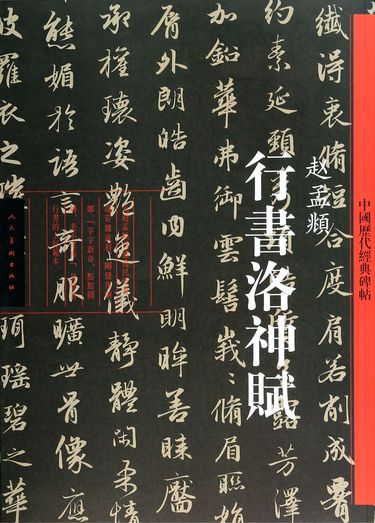 中國歷代經典碑帖
赵孟頫
行書洛神賦
纖得衷脩短合度肩若削成
約素延頸
露芳澤
加鉛華弗御雲髻峩峩脩眉聯
脣外朗皓齒内鮮明眸善睞靨
承權瓌姿艷逸儀靜體閑柔情
態媚於語言奇服曠世骨像應
披羅衣之
珥瑤碧之華
娜，字字新奇，點點圓
人民美術出版社